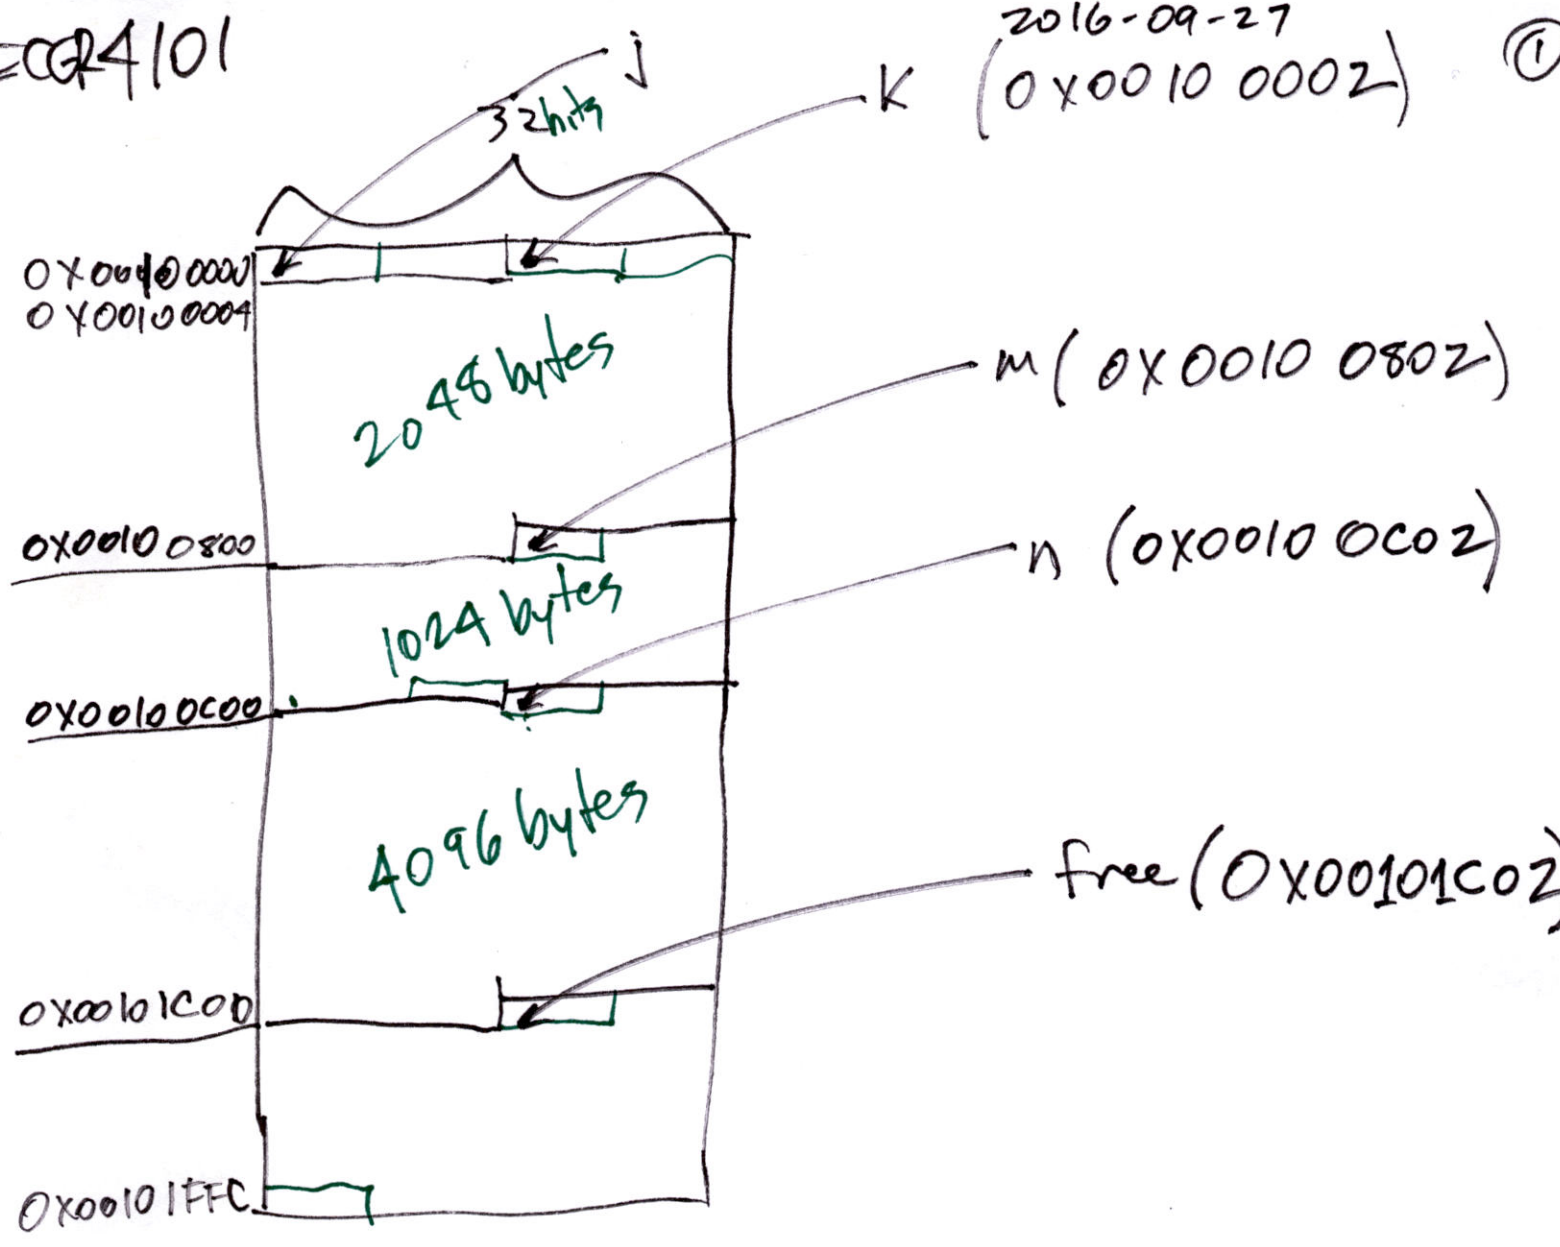 ECGR4101
2016-09-27
1
j
K (0X0010 0002)
32bits
0X00100000
0X00100004
2048 bytes
m (0X0010 0802)
0X0010 0800
1024 bytes
n (0X0010 0C02)
0X00100C00
4096 bytes
free (0X00101C02)
0X00101C00
0X00101FFC